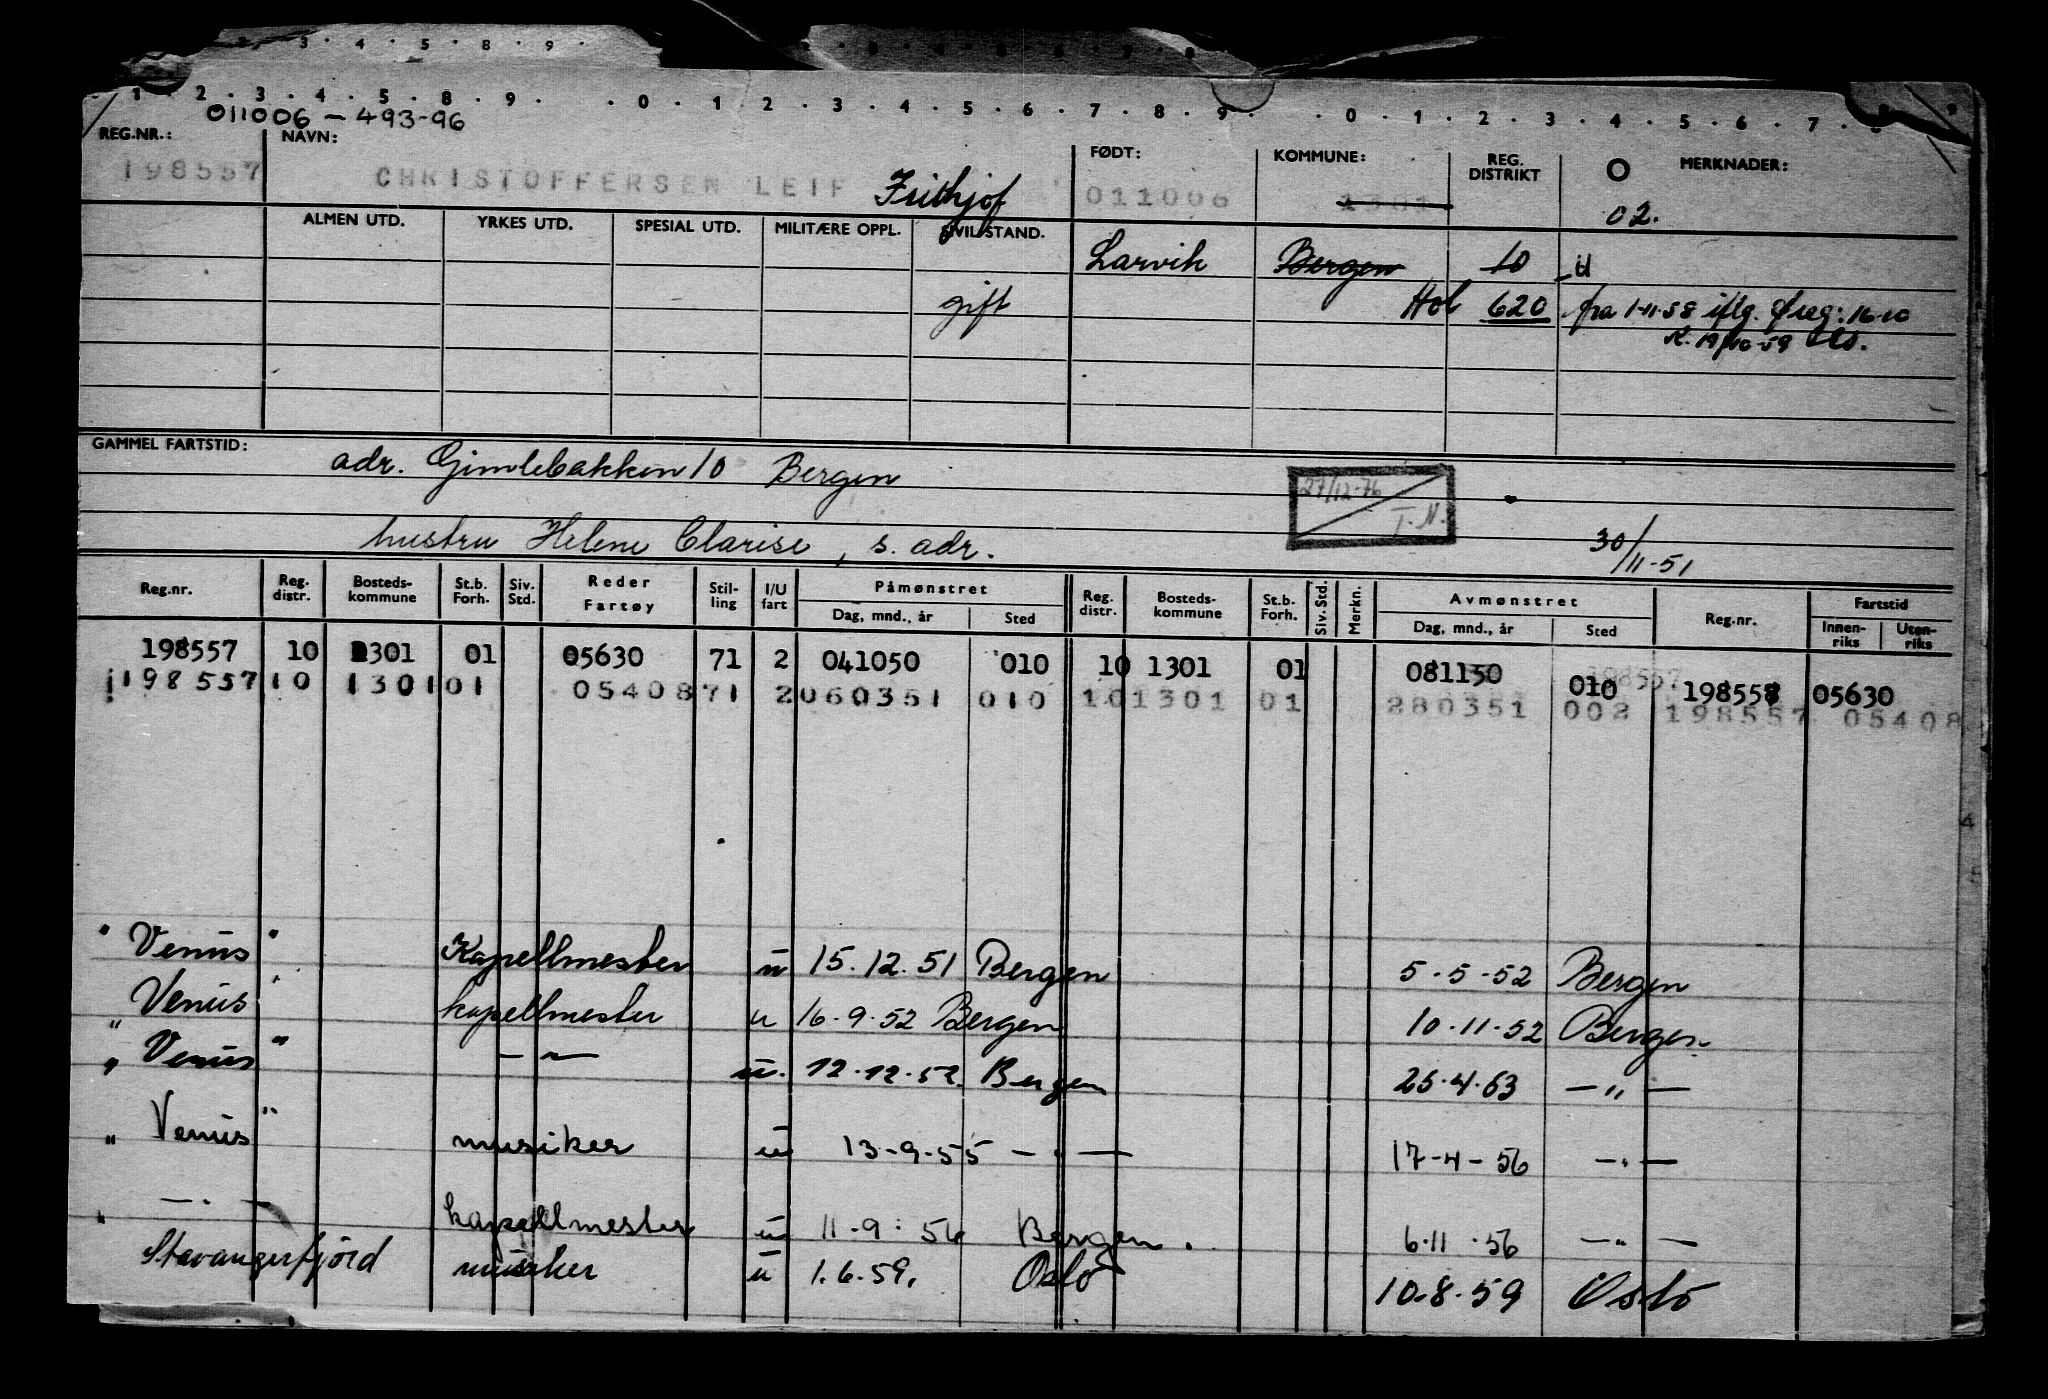 011006 - 493-96
REG.NR.: NAVN: FØDT: KOMMUNE: REG. DISTRIKT O MERKNADER:
198557 CHRISTOFFERSEN LEIF Frithjof 011006 1301 02.
ALMEN UTD. YRKES UTD. SPESIAL UTD. MILITÆRE OPPL. SIVILSTAND.
Larvik Bergen 10 U
gift Hol 620 fra 1-11-58 iflg. Øreg: 16-10
K. 19/10-59
GAMMEL FARTSTID: adr. Gimlebakken 10 Bergen
27/12-76 T.N.
hustru Helene Clarise, s. adr. 30/11-51
Reg.nr. Reg. distr. Bosteds-kommune St.b. Forh. Siv. Std. Reder Fartøy Stil-ling I/U fart Påmønstret Dag, mnd., år Sted Reg. distr. Bosteds-kommune St.b. Forh. Siv. Std. Merkn. Avmønstret Dag, mnd., år Sted Reg.nr. Fartstid Innen-riks Uten-riks
198557 10 1301 01 05630 71 2 041050 010 10 1301 01 081150 010 198557 05630
198557 10 1301 01 05408 71 2 060351 010 10 1301 01 280351 002 198557 05408
" Venus " Kapellmester u 15.12.51 Bergen 5-5-52 Bergen
Venus " kapellmester u 16-9-52 Bergen 10-11-52 Bergen
" Venus " — " — u. 12-12-52 Bergen 25-4-53 — " —
" Venus " musiker u 13-9-55 — " — 17-4-56 — " —
— " — kapellmester u 11-9-56 Bergen. 6-11-56 — " —
" Stavangerfjord musiker u 1.6.59. Oslo 10-8-59 Oslo